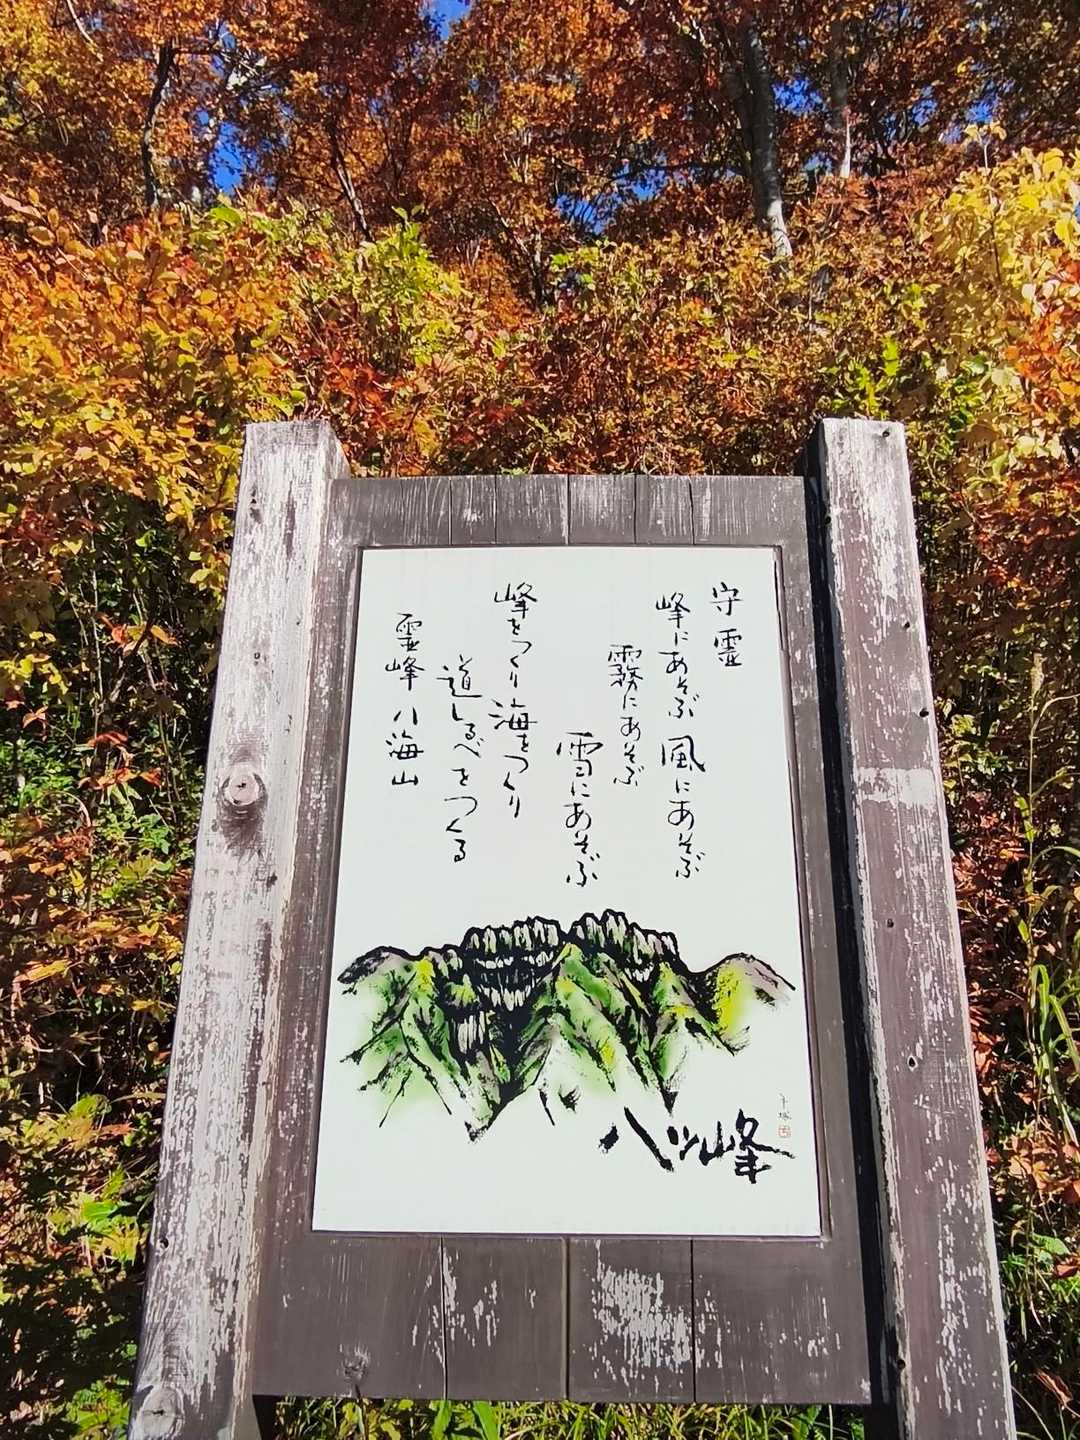 守霊
峰にあそぶ 風にあそぶ
霧にあそぶ
雪にあそぶ
峰をつくり 海をつくり
道しるべをつくる
霊峰 八海山
八ツ峰